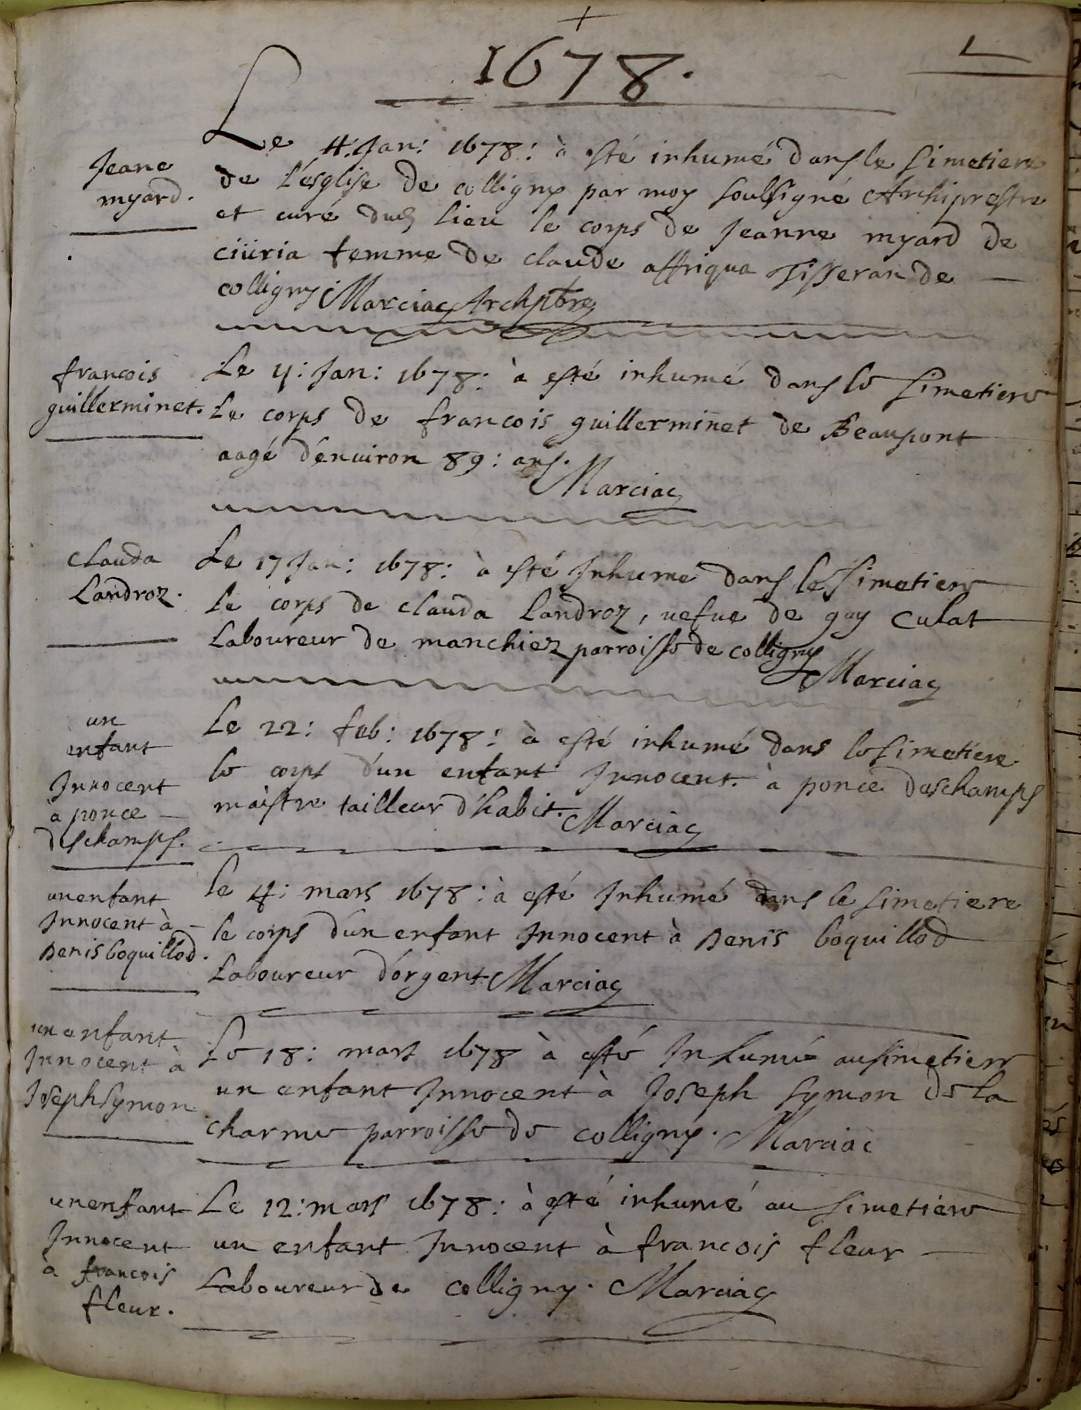 1678.
Jeane
myard.
Le 4: Jan: 1678: à esté inhumé dans le simetiere
de l'esglise de colligny par moy soussigné Archiprestre
et curé dud lieu le corps de Jeanne myard de
femme de claude affriqua Tisseran de
colligny Marciac Archiptre
francois
guillerminet.
Le 11: Jan: 1678: à esté inhumé dans le simetiere
Le corps de francois guillerminet de Beaupont
aagé d'enuiron 89: ans. Marciac
clauda
Landroz.
Le 17 Jan: 1678: à esté Inhumé dans le simetiere
le corps de clauda Landroz, uefue de guy Culat
Laboureur de manchiez parroisse de colligny
Marciac
un
enfant
Innocent
à ponce
deschamps.
Le 22: feb: 1678: à esté inhumé dans le simetiere
le corps d'un enfant Innocent à ponce deschamps
maistre tailleur d'habit. Marciac
un enfant
Innocent à
Denis boquillod.
le 4: mars 1678: à esté Inhumé dans le simetiere
le corps d'un enfant Innocent à Denis boquillod
Laboureur d'orgent Marciac
un enfant
Innocent à
Joseph symon
Le 18: mars 1678 à esté Inhumé au simetiere
un enfant Innocent à Joseph symon de la
charme parroisse de colligny. Marciac
un enfant
Innocent
à francois
fleur.
Le 12: mars 1678: à esté inhumé au simetiere
un enfant Innocent à francois fleur
Laboureur de colligny. Marciac